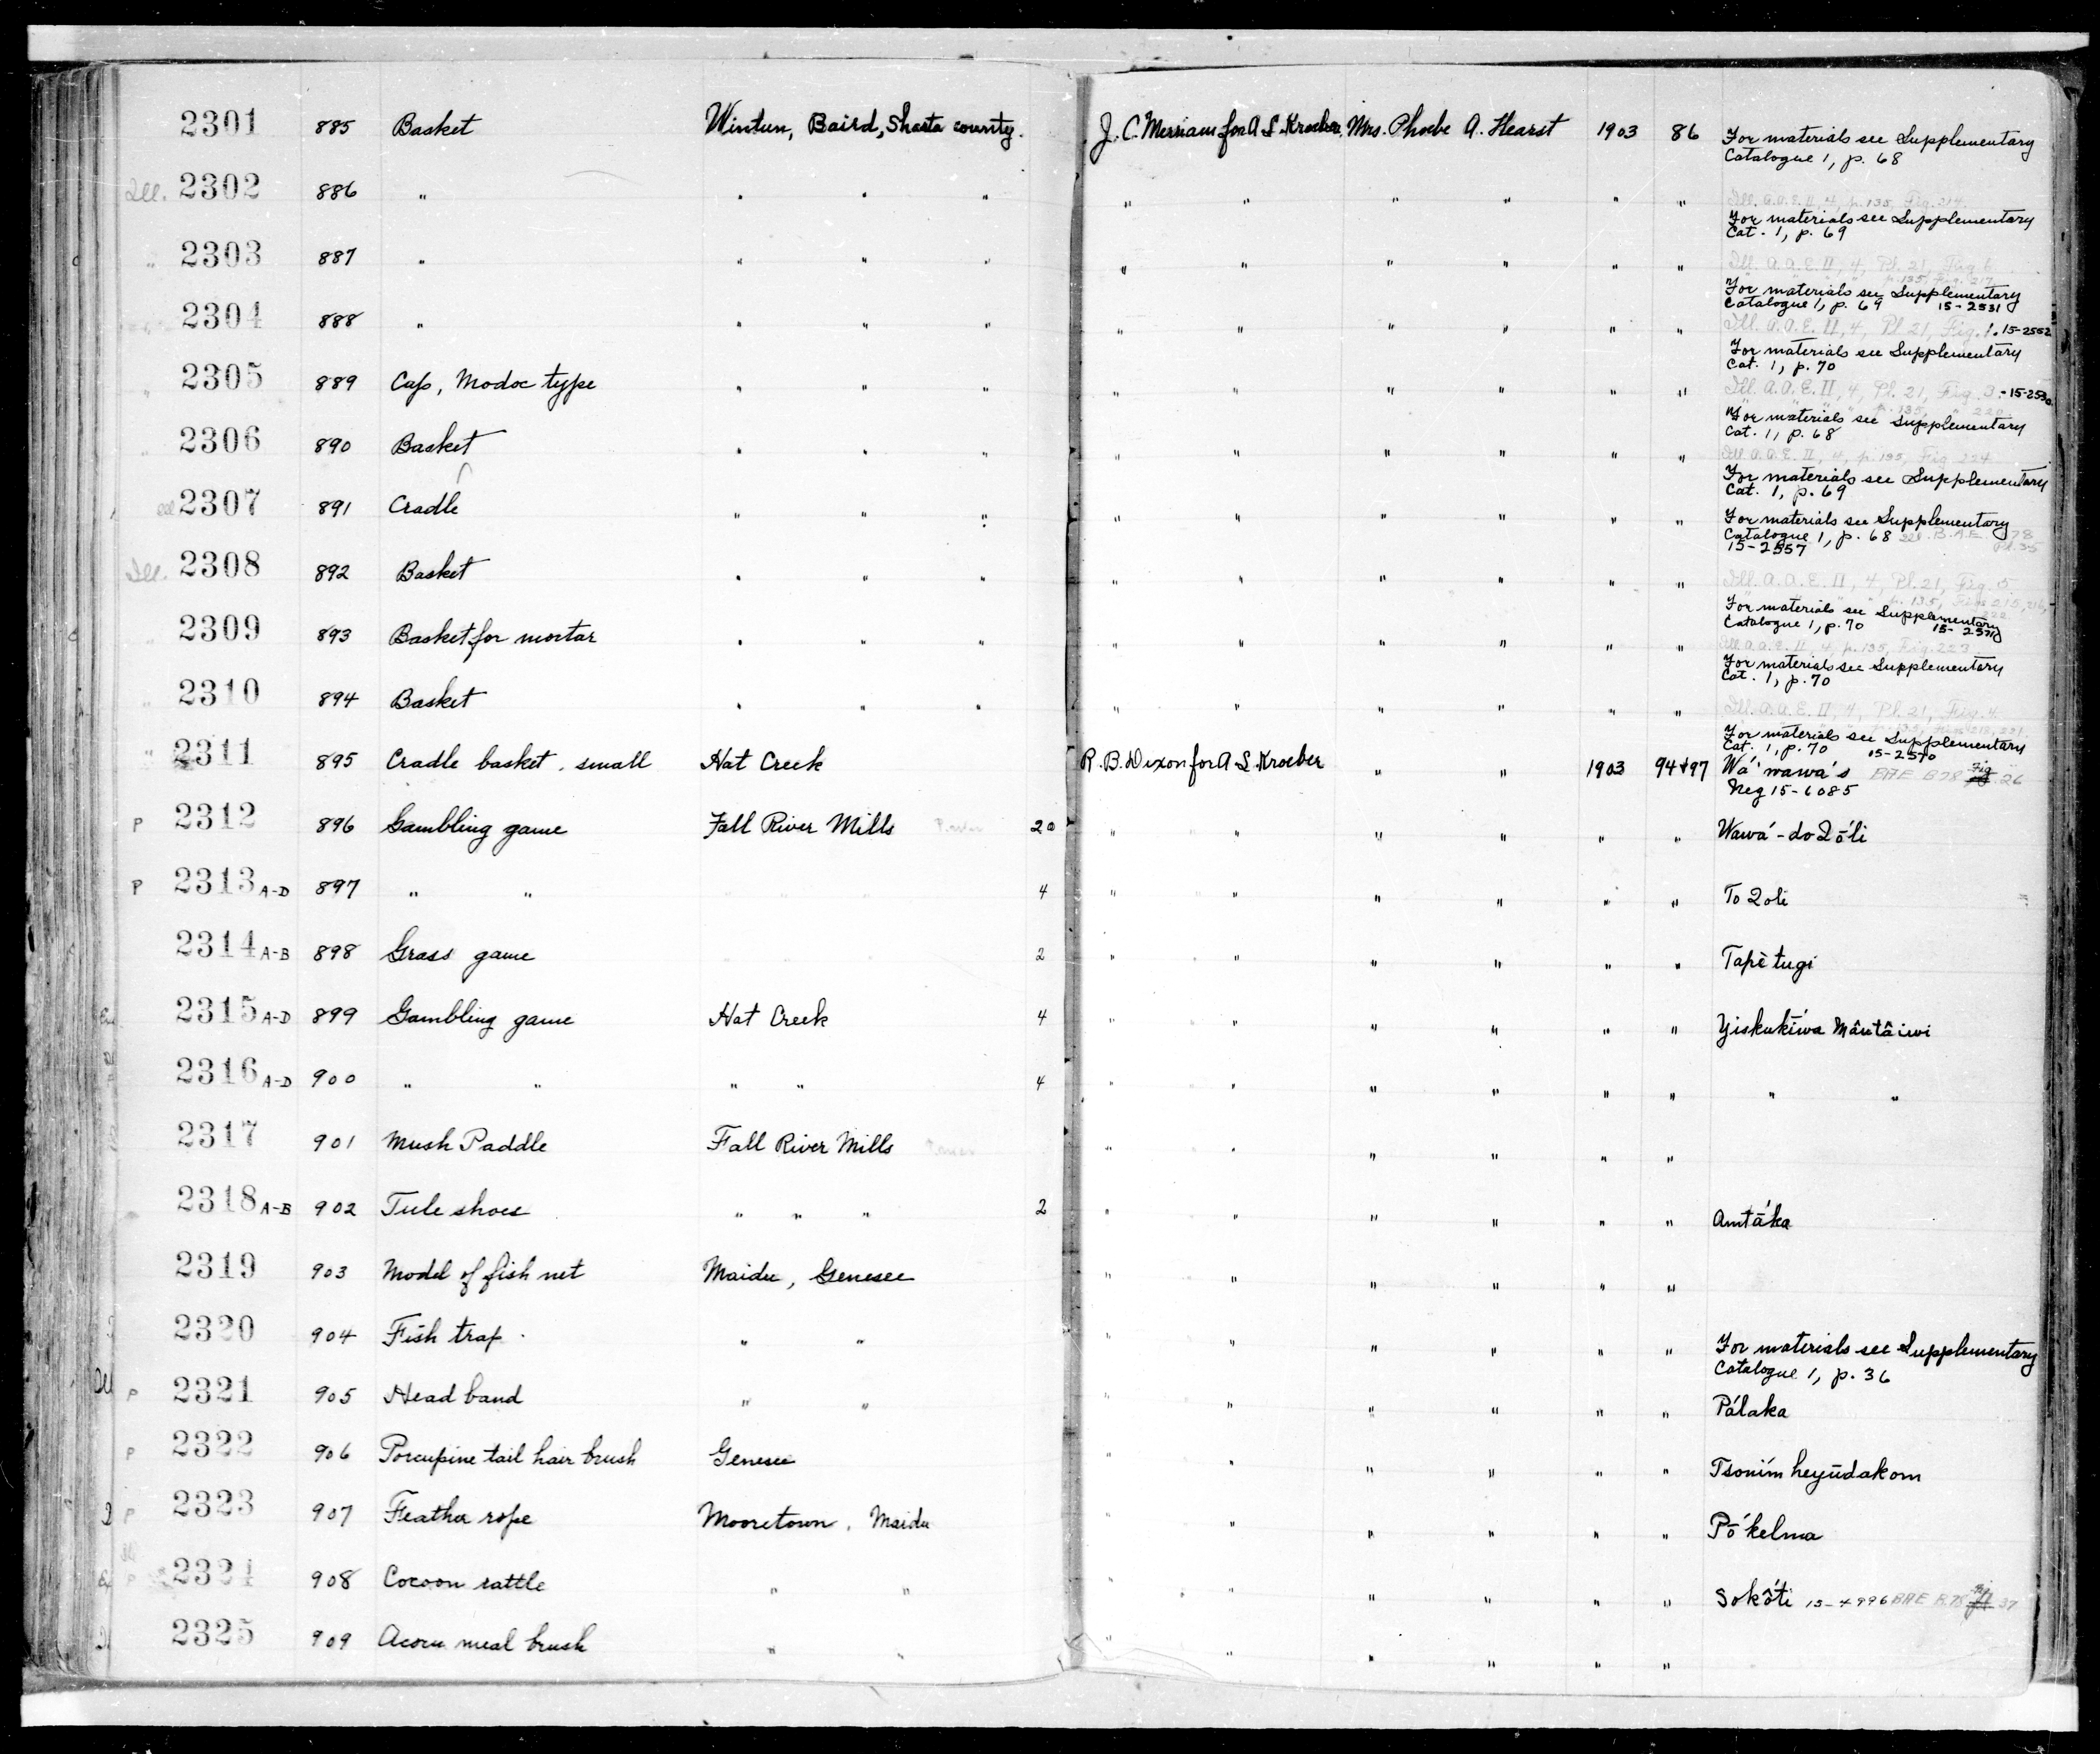 2301 885 Basket Wintun, Baird, Shasta county. J. C. Merriam for A. L. Kroeber, Mrs. Phoebe A. Hearst 1903 86 For materials see Supplementary
Catalogue 1, p. 68
Ill. 2302 886 " " " " " " " " " " Ill. A.A.E. II, 4, p. 135, Fig. 214.
For materials see Supplementary
Cat. 1, p. 69
" 2303 887 " " " " " " " " " " Ill. A.A.E. II, 4, Pl. 21, Fig. 6
For materials see Supplementary
Catalogue 1, p. 69 15-2531
2304 888 " " " " " " " " " " Ill. A.A.E. II, 4, Pl. 21, Fig. 1. 15-2552
For materials see Supplementary
Cat. 1, p. 70
" 2305 889 Cap, Modoc type " " " " " " " " " Ill. A.A.E. II, 4, Pl. 21, Fig. 3.
For materials see Supplementary
Cat. 1, p. 68
" 2306 890 Basket " " " " " " " " " Ill. A.A.E. II, 4, p. 135, Fig. 224
For materials see Supplementary
Cat. 1, p. 69
2307 891 Cradle " " " " " " " " " For materials see Supplementary
Catalogue 1, p. 68 Ill. B.A.E. 78
15-2557 Pl. 35
Ill. 2308 892 Basket " " " " " " " " " Ill. A.A.E. II, 4, Pl. 21, Fig. 5
For materials see Supplementary
Catalogue 1, p. 70
2309 893 Basket for mortar " " " " " " " " " Ill. A.A.E. II, 4, p. 135, Fig. 223
For materials see Supplementary
Cat. 1, p. 70
" 2310 894 Basket " " " " " " " " " Ill. A.A.E. II, 4, Pl. 21, Fig. 4
For materials see Supplementary
Cat. 1, p. 70 15-2570
" 2311 895 Cradle basket, small Hat Creek R. B. Dixon for A. L. Kroeber " " 1903 94+97 Wá'wawa's BAE B78 Fig. 26
Neg 15-6085
P 2312 896 Gambling game Fall River Mills 20 " " " " " " Wawá-do2ō'li
P 2313 A-D 897 " " 4 " " " " " " To2oli
2314 A-B 898 Grass game 2 " " " " " " Tapètugi
2315 A-D 899 Gambling game Hat Creek 4 " " " " " " Yiskukíwa Mâutâiwi
2316 A-D 900 " " " " 4 " " " " " " " "
2317 901 Mush Paddle Fall River Mills " " " " " "
2318 A-B 902 Tule shoes " " " 2 " " " " " " Amtáka
2319 903 Model of fish net Maidu, Genesee " " " " " "
2320 904 Fish trap " " " " " " " " For materials see Supplementary
Catalogue 1, p. 36
P 2321 905 Head band " " " " " " " " Pálaka
P 2322 906 Porcupine tail hair brush Genesee " " " " " " Tsoním heyūdakom
P 2323 907 Feather rope Mooretown, Maidu " " " " " " Pō'kelma
P 2324 908 Cocoon rattle " " " " " " " " Sokôti 15-4996 BAE B.78 37
2325 909 Acorn meal brush " " " " " " " "